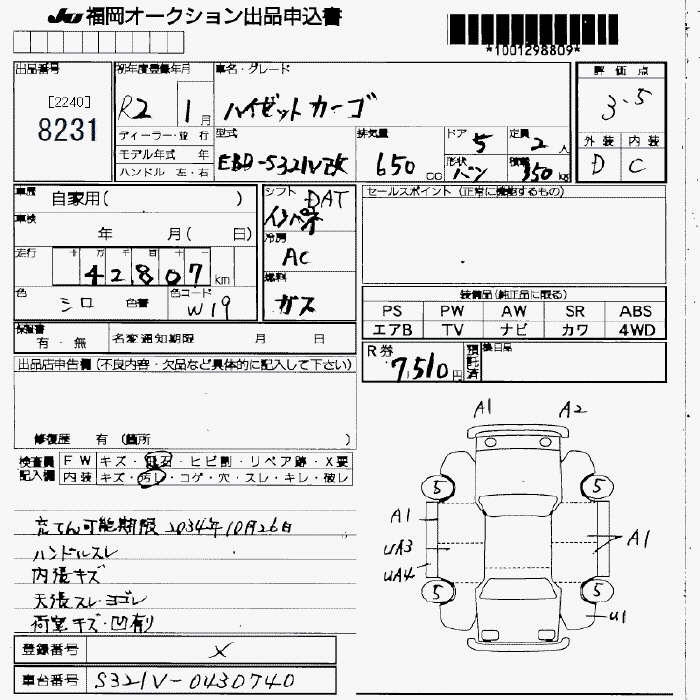 JU 福岡オークション出品申込書
*1001298809*
出品番号
[2240]
8231
初年度登録年月
R2 1月
車名・グレード
ハイゼットカーゴ
評価点
3.5
外装 内装
D C
ディーラー・並行
モデル年式 年
ハンドル 左・右
型式
EBD-S321V改
排気量
650 cc
ドア 5
形状 バン
定員 2人
積載 350kg
車歴 自家用( )
車検
年 月( 日)
走行
十 万 千 百 十 一
42,807 km
色 シロ 色替
色コード W19
シフト DAT
インパネ
冷房 AC
燃料 ガス
セールスポイント (正常に機能するもの)
装備品(純正品に限る)
PS PW AW SR ABS
エアB TV ナビ カワ 4WD
保証書
有・無
名変通知期限 月 日
R券 7,510円
預託済
出品店申告欄(不良内容・欠品など具体的に記入して下さい)
修復歴 有 (箇所 )
検査員記入欄
FW キズ・飛石・ヒビ割・リペア跡・X要
内装 キズ・汚レ・コゲ・穴・スレ・キレ・破レ
充てん可能期限 2034年10月26日
ハンドルスレ
内張キズ
天張スレ・ヨゴレ
荷室キズ・凹有り
登録番号 ×
車台番号 S321V-0430740
A1 A2
5 5
A1
UA3
UA4
A1
5 5
U1